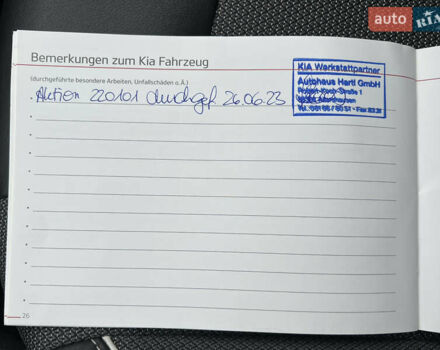 auto RIA
Bemerkungen zum Kia Fahrzeug
(durchgeführte besondere Arbeiten, Unfallschäden o.Ä.)
Aktion 220101 durchgef. 26.06.23
KIA Werkstattpartner
Autohaus Hartl GmbH
Robert-Koch-Straße 1
26